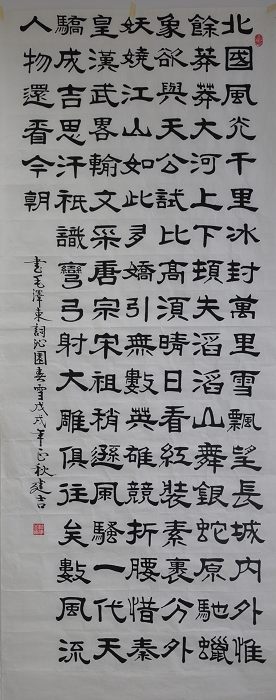 北國風光千里冰封萬里雪飄望長城內外惟
餘莽莽大河上下頓失滔滔山舞銀蛇原馳蠟
象欲與天公試比高須晴日看紅裝素裹分外
妖嬈江山如此多嬌引無數英雄競折腰惜秦
皇漢武畧輸文采唐宗宋祖稍遜風騷一代天
驕成吉思汗祇識彎弓射大雕俱往矣數風流
人物還看今朝
書毛澤東詞沁園春雪戊戌年正秋建吉